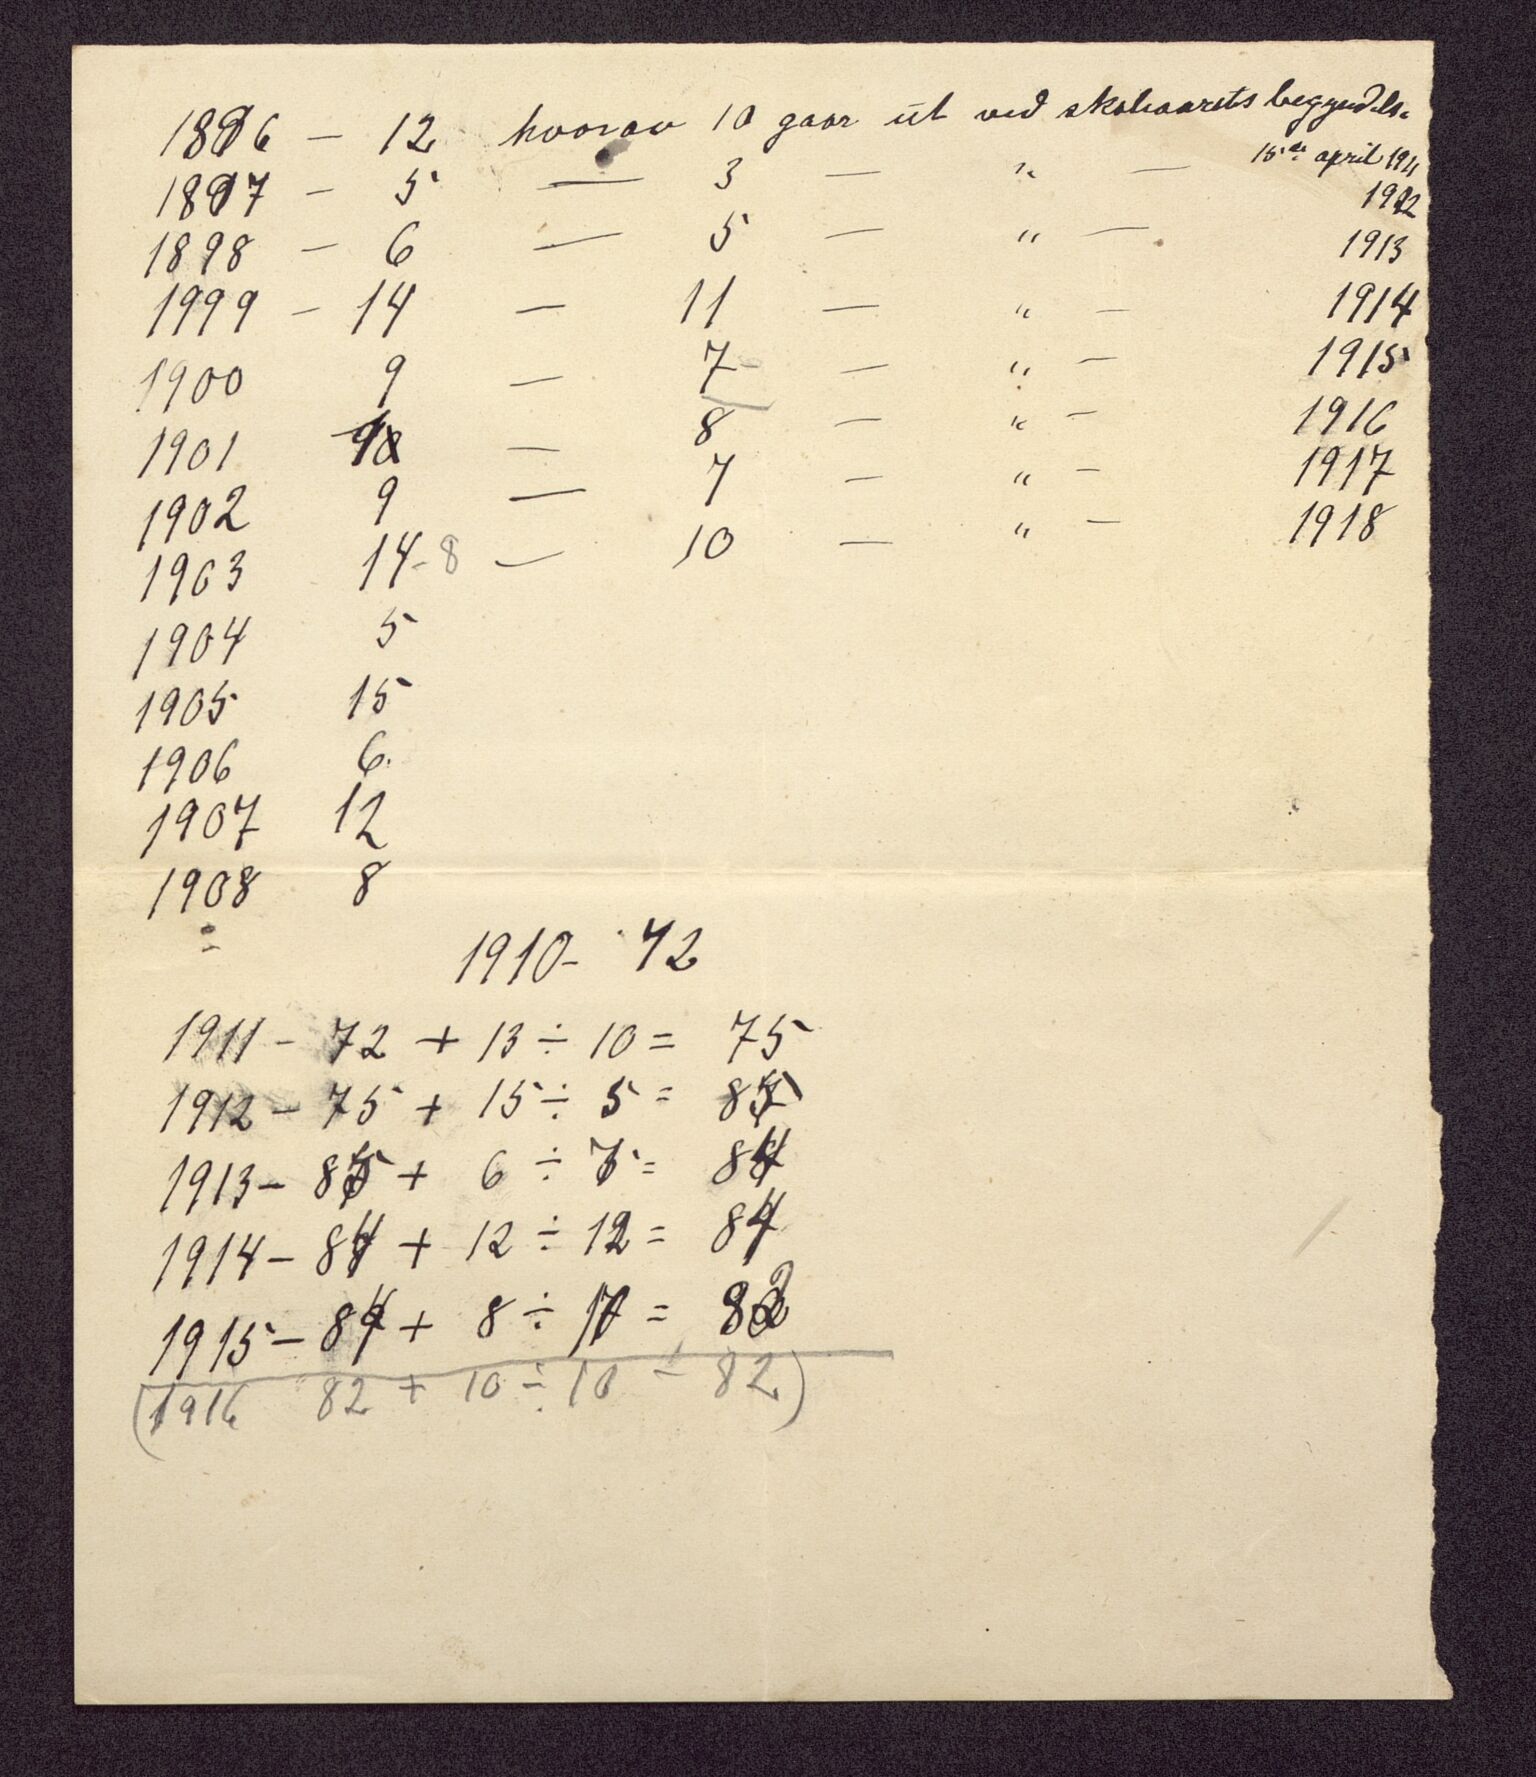 1896 – 12 hvorav 10 gaar ut ved skoleaarets begyndelse
15de april 1911
1897 – 5 — 3 — " — 1912
1898 – 6 — 5 — " — 1913
1999 – 14 — 11 — " – 1914
1900 9 — 7 — " – 1915
1901 — 8 — " – 1916
1902 9 — 7 — " – 1917
1903 14 - 8 — 10 — " – 1918
1904 5
1905 15
1906 6.
1907 12
1908 8
1910 - 72
1911 - 72 + 13 ÷ 10 = 75
1912 - 75 + 15 ÷ 5 = 85
1913 - 85 + 6 ÷ 7 = 84
1914 - 84 + 12 ÷ 12 = 84
1915 - 84 + 8 ÷ 10 = 82
(1916 82 + 10 ÷ 10 = 82)